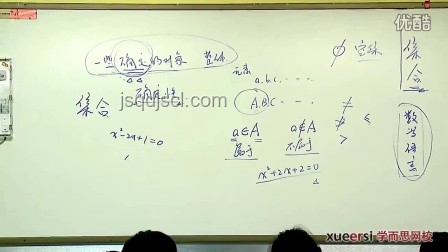 优酷
一些 确定的对象 整体
元素
∅ 空集
集合
a.b.c.…
集合
确定性
A.B.C…
≠
x²-2x+1=0
a∈A a∉A
属于 不属于
>
数学语言
x²+2x+2=0
jsqdjscl.com
xueersi 学而思网校